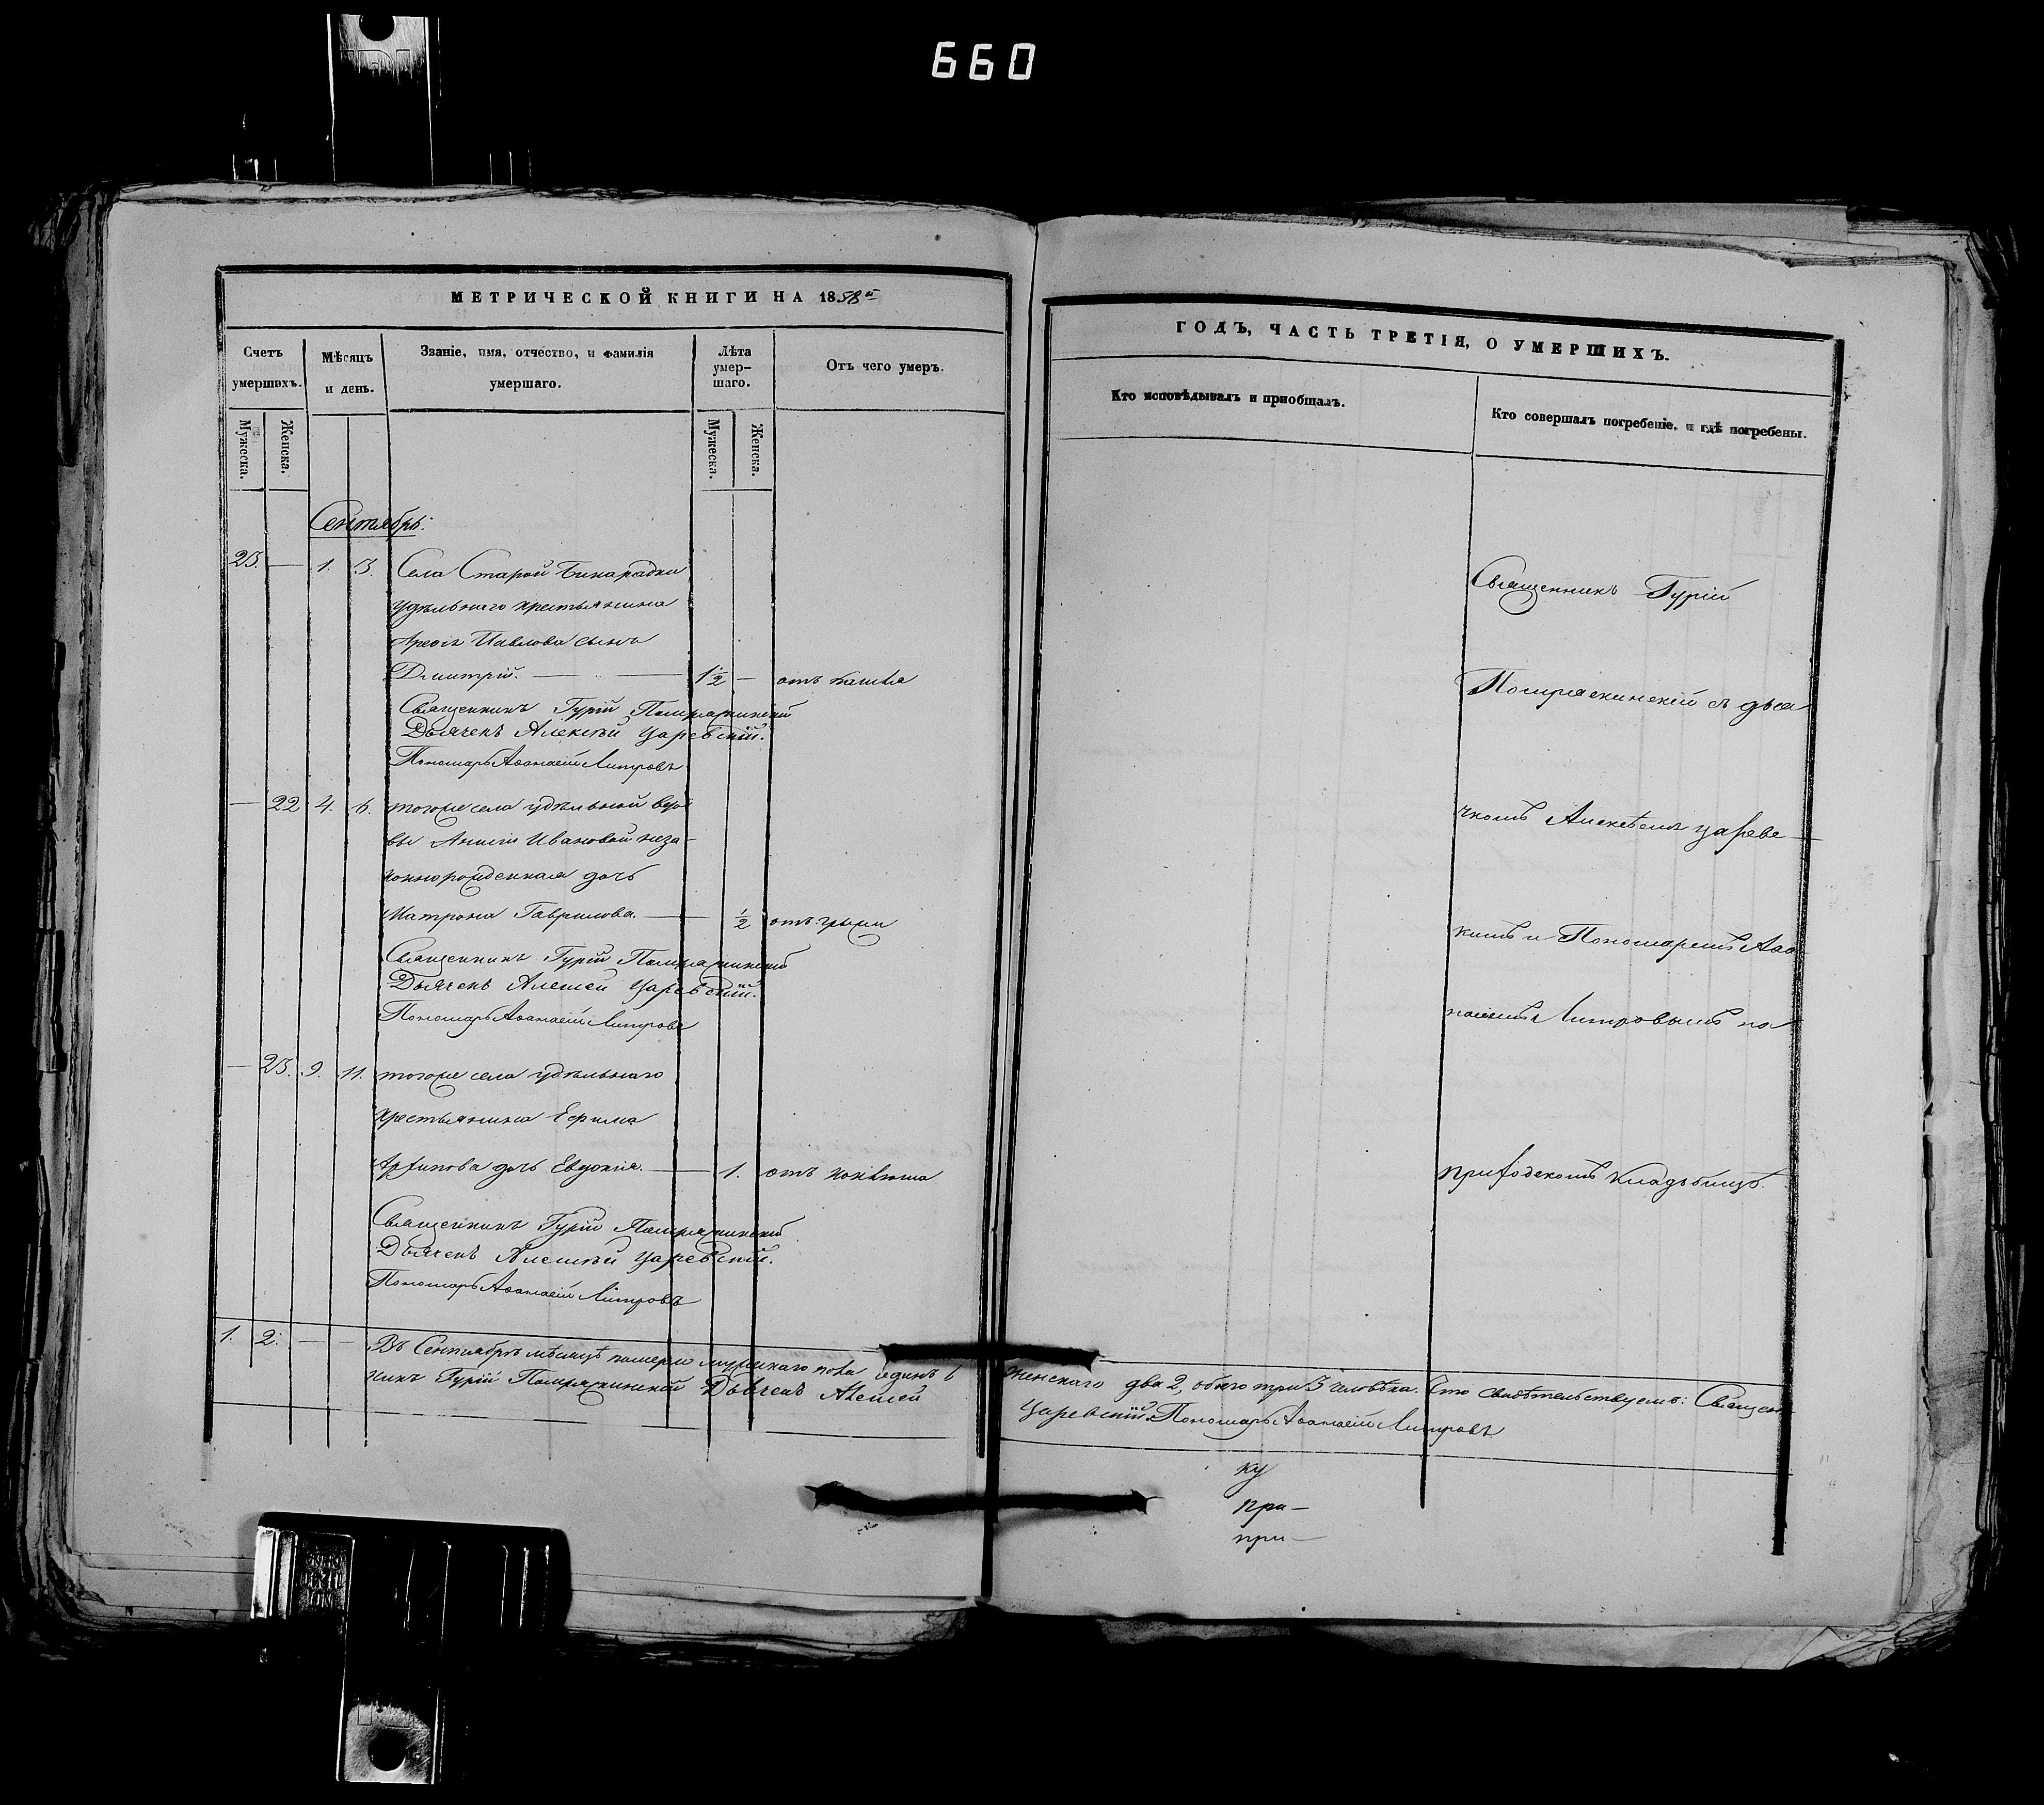 660
МЕТРИЧЕСКОЙ КНИГИ НА 1858й
Счетъ умершихъ.
Мѣсяцъ и день.
Званіе, имя, отчество, и фамилія умершаго.
Лѣта умер-шаго.
Отъ чего умеръ.
Мужеска.
Женска.
Мужеска.
Женска.
Сентябрь.
23. — 1. 3. Села Старой Бинарадки
удѣльнаго крестьянина
Павлова сынъ
Дмитрій. — 1½ — отъ кашля
Священникъ Гурій
Дьячекъ Алексѣй Царевскій.
Пономарь Аѳанасій
— 22 4. 6. тогоже села удѣльной вдо
вы Ивановой неза-
коннорожденная дочь
Матрона Гаврилова. — ½ отъ грыжи
Священникъ Гурій
Дьячекъ Алексѣй Царевскій.
Пономарь Аѳанасій
— 23. 9. 11. тогоже села удѣльнаго
крестьянина Ефима
Архипова дочь Евдокія. — 1. отъ поноса
Священникъ Гурій
Дьячекъ Алексѣй Царевскій.
Пономарь Аѳанасій
1. 2. — — Въ Сентябрѣ мѣсяцѣ померло мужскаго пола одинъ 1
никъ Гурій Дьячекъ Алексѣй
ГОДЪ, ЧАСТЬ ТРЕТІЯ, О УМЕРШИХЪ.
Кто исповѣдывалъ и пріобщалъ.
Кто совершалъ погребеніе, и гдѣ погребены.
Священникъ Гурій
съ дья
чкомъ Алексѣемъ Царевс—
кимъ и Пономаремъ Аѳа
насіемъ на
приходскомъ кладбищѣ.
женскаго два 2, обоего три 3 человѣка. Что свидѣтельствуемъ: Священ
Царевскій. Пономарь Аѳанасій
ку
при—
при—